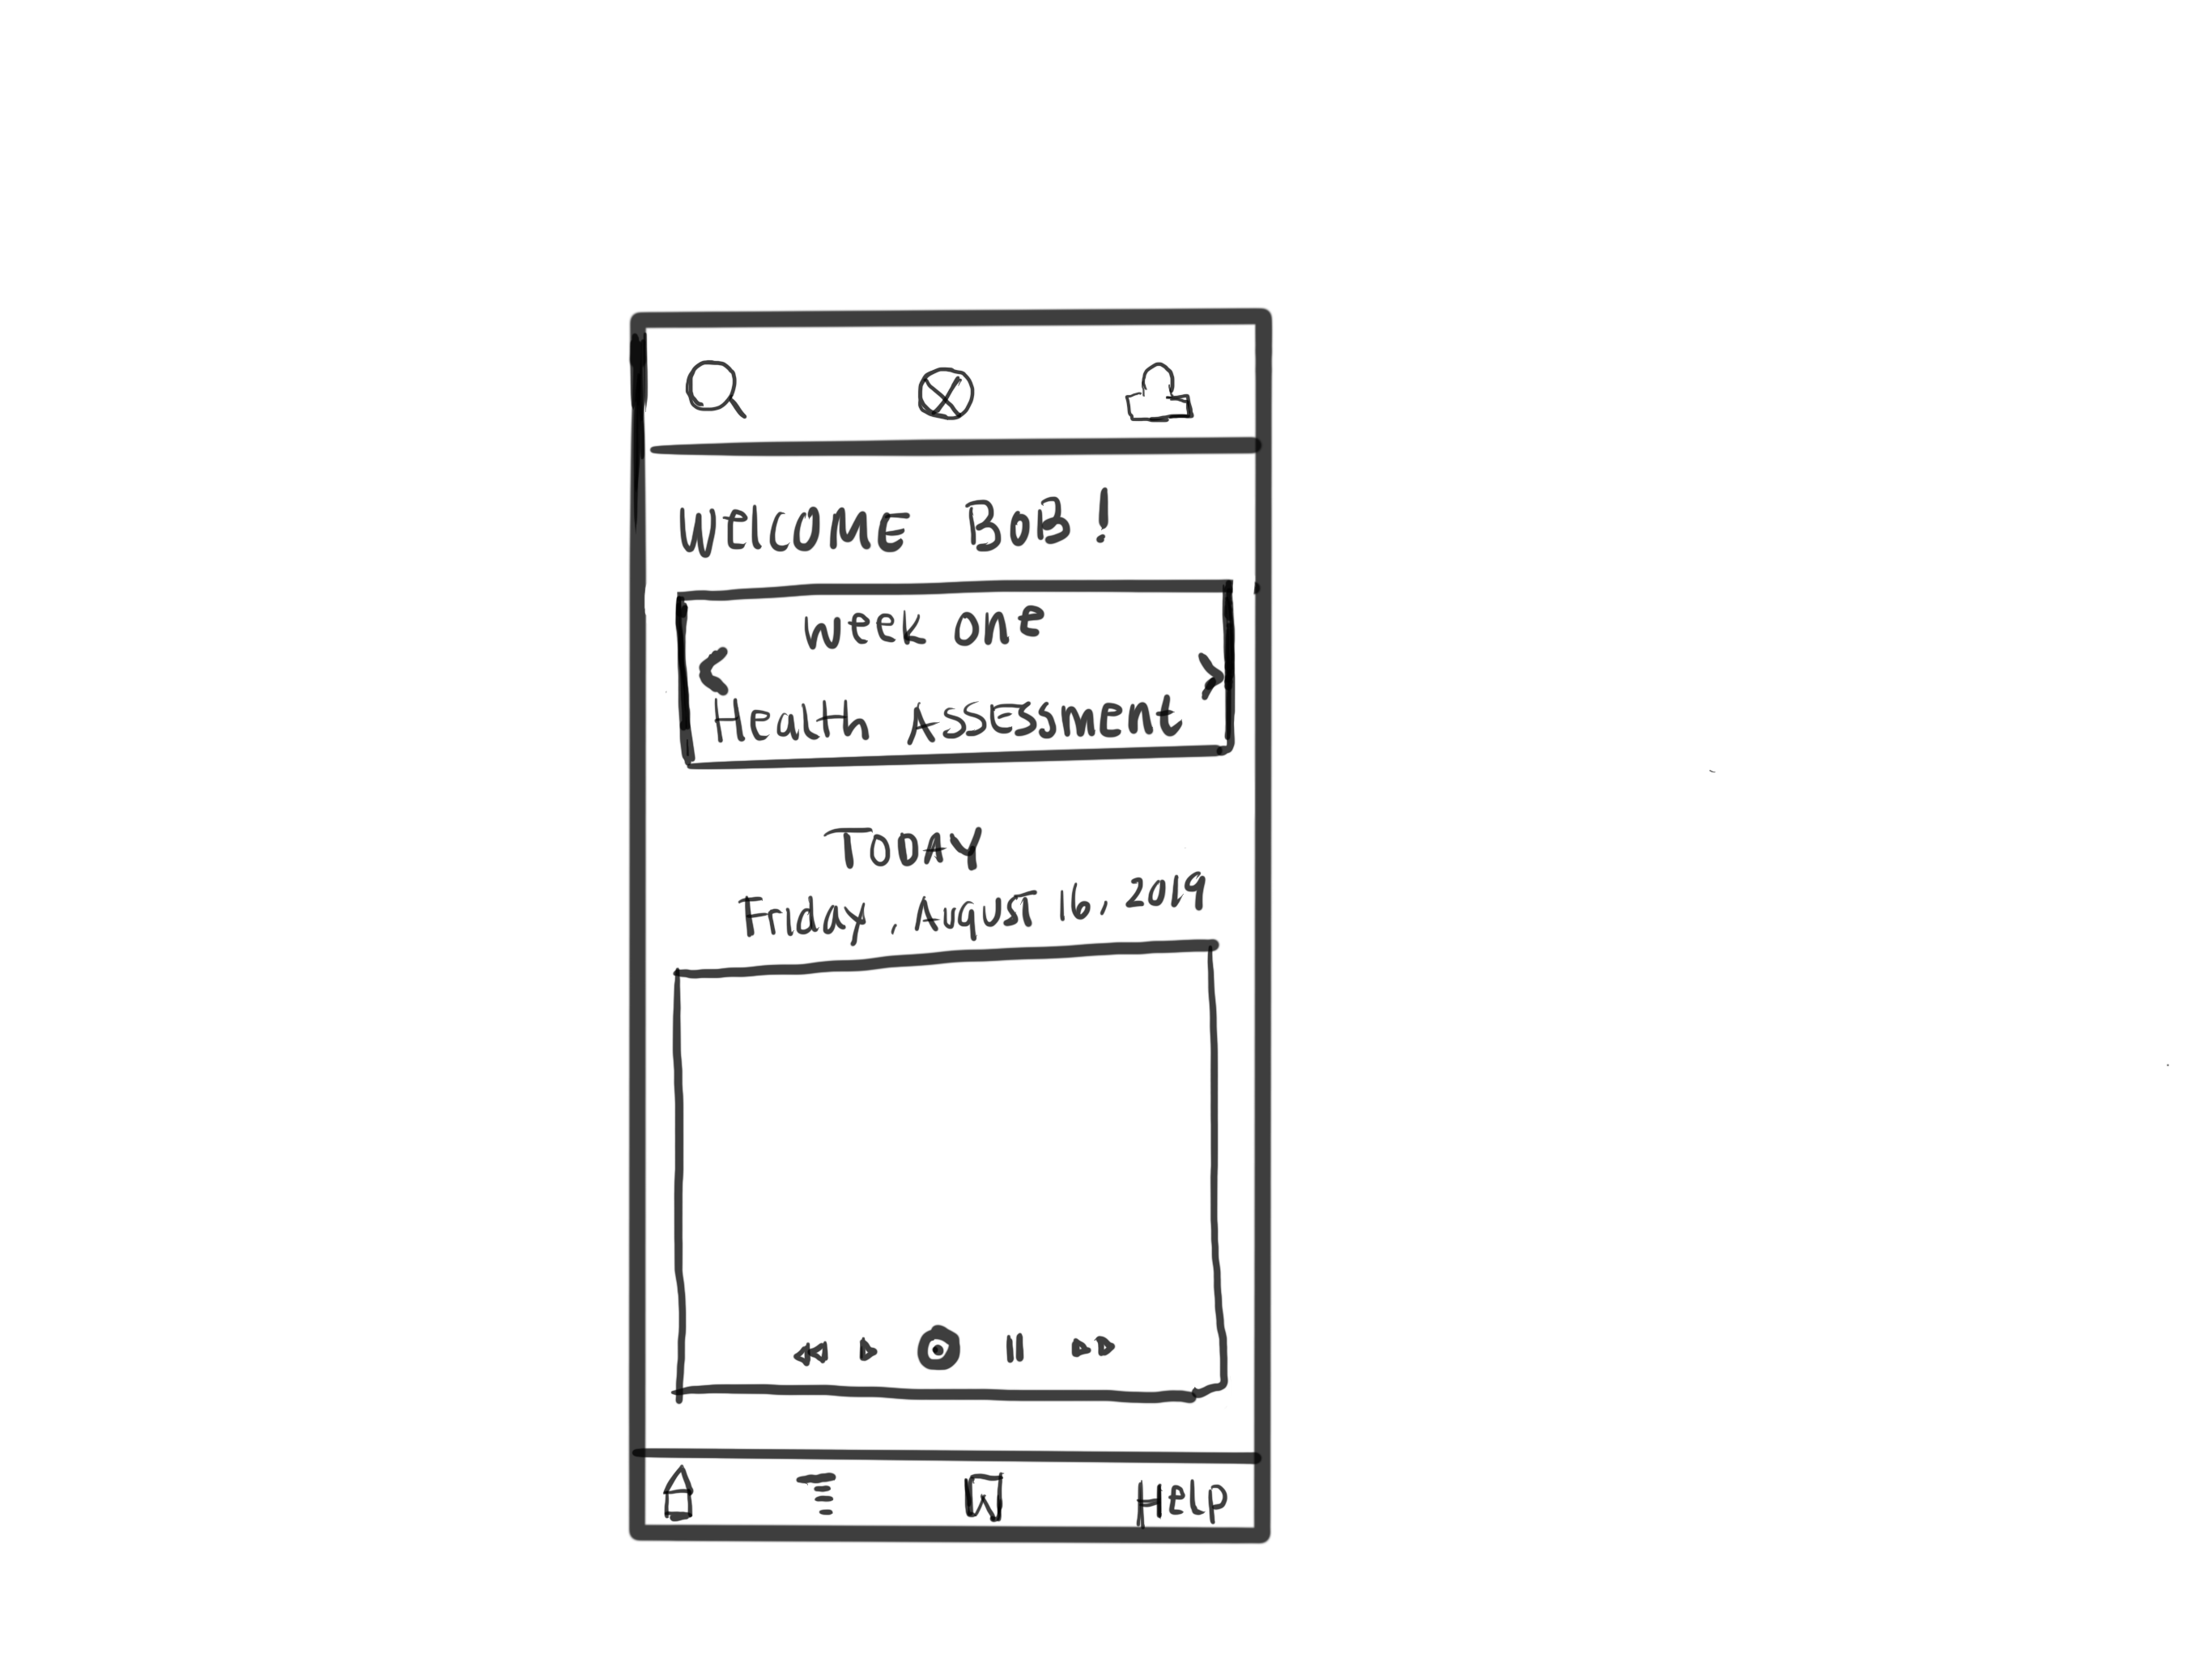 WelcOME BOB!
week one
Health ASSESSment
TODAY
Friday, AugUST 16, 2019
Help